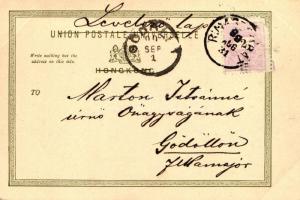 Levelező lap
UNION POSTALE UNIVERSELLE
Write nothing but the
address on this side.
HONGKONG
SEP
1
TO
Marton Istvánné
úrnő Őnagyságának
Gödöllőn